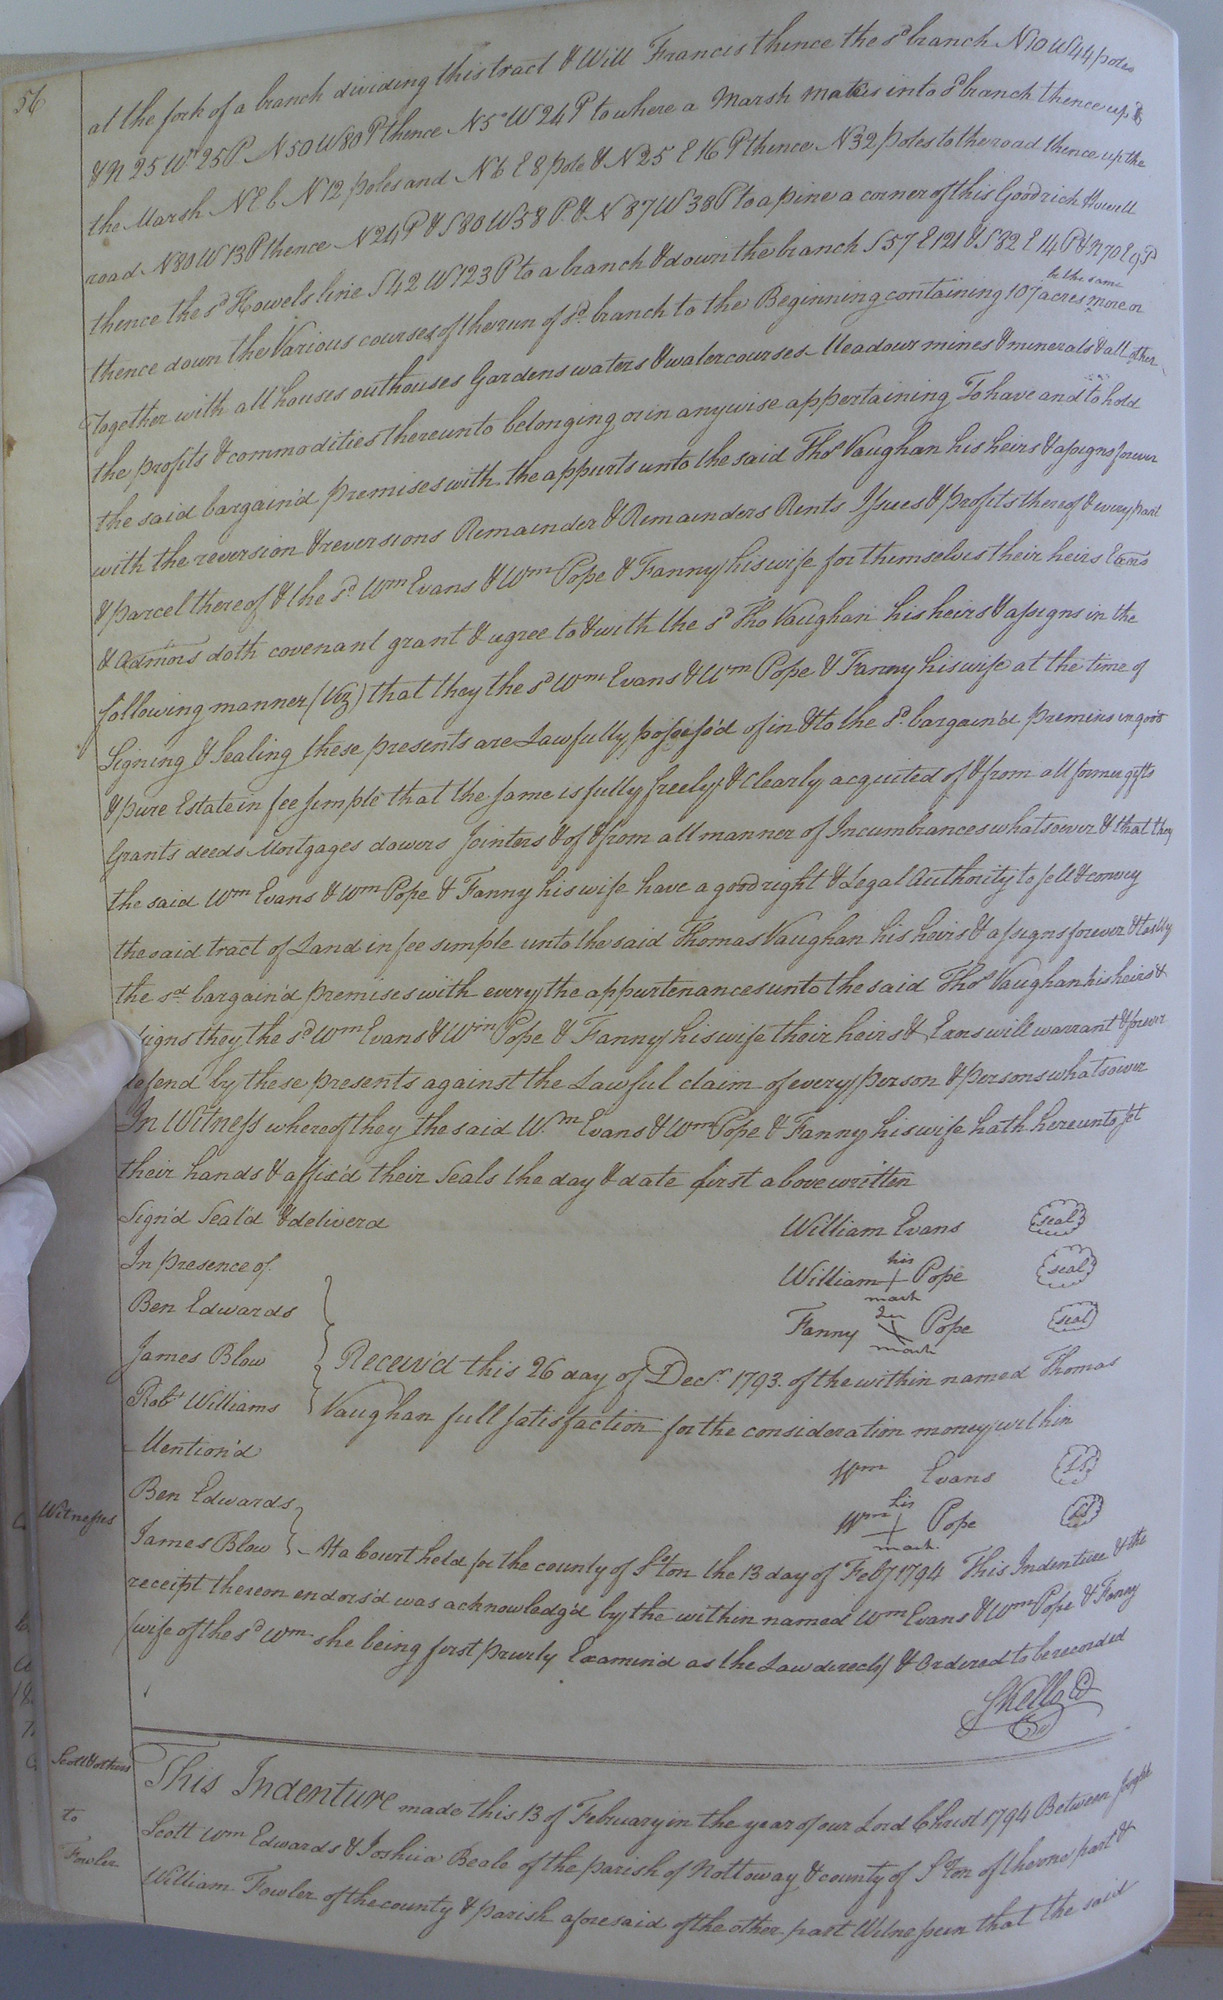 56
at the fork of a branch dividing this tract & Will Francis thence the sd branch N10W44 poles
& N 25 W 25P N50W80P thence N5°W24P to where a Marsh makes into sd branch thence up
the Marsh N E 6 N 12 poles and N 6 E 8 pole & N 25 E 16 P thence N32 poles to the road thence up the
road N80W13P thence N24P & S80W58P. & N87W38P to a pine a corner of this Goodrich Howell
thence the sd Howels line S42W123P to a branch & down the branch S57E121 & S82E14P & N70E9P
thence down the Various courses of the run of sd. branch to the Beginning containing 107 acres be the same more or
Together with all houses outhouses Gardens waters & watercourses Meadows mines & minerals & all other
the profits & commodities thereunto belonging or in anywise appertaining To have and to hold
the said bargain'd premises with the appurts unto the said Thos Vaughan his heirs & assigns forever
with the reversion & reversions Remainder & Remainders Rents Issues & profits thereof & every part
& parcel thereof & the sd. Wm Evans & Wm Pope & Fanny his wife for themselves their heirs Exors
& Admors doth covenant grant & agree to & with the sd Tho Vaughan his heirs & assigns in the
following manner (Viz) that they the sd Wm Evans & Wm Pope & Fanny his wife at the time of
Signing & Sealing these presents are Lawfully possess'd of in & to the sd. bargain'd premises in good
& pure Estate in fee simple that the same is fully freely & Clearly acquited of & from all former gifts
Grants deeds Mortgages dowers Jointers & of & from all manner of Incumbrances whatsoever & that they
the said Wm Evans & Wm Pope & Fanny his wife have a good right & Legal Authority to sell & convey
the said tract of Land in fee simple unto the said Thomas Vaughan his heirs & assigns forever & lastly
the sd bargain'd premises with every the appurtenances unto the said Thos Vaughan his heirs &
signs they the sd Wm Evans & Wm Pope & Fanny his wife their heirs & Exors will warrant & forever
defend by these presents against the Lawful claim of every person & persons whatsoever
In Witness whereof they the said Wm Evans & Wm Pope & Fanny his wife hath hereunto set
their hands & affix'd their Seals the day & date first above written
Sign'd Seal'd & deliverd William Evans seal
In presence of his
William + Pope seal
mark
Ben Edwards her
Fanny X Pope seal
mark
James Blow Receiv'd this 26 day of Decr. 1793. of the within named Thomas
Robt Williams Vaughan full satisfaction for the consideration money within
Mention'd Wm Evans LS
Ben Edwards his
Witnesses Wm + Pope LS
mark
James Blow At a Court held for the county of So.ton the 13 day of Feby 1794 This Indenture & the
receipt thereon endors'd was acknowledg'd by the within named Wm Evans & Wm Pope & Fanny
wife of the sd Wm she being first privily Examin'd as the Law directs & Ordered to be recorded
SKello Cl
Scott & others This Indenture made this 13 of February in the year of our Lord Christ 1794 Between Joseph
to Scott Wm Edwards & Joshua Beale of the parish of Nottoway & county of S°ton of the one part &
Fowler William Fowler of the county & parish aforesaid of the other part Witnesseen that the said